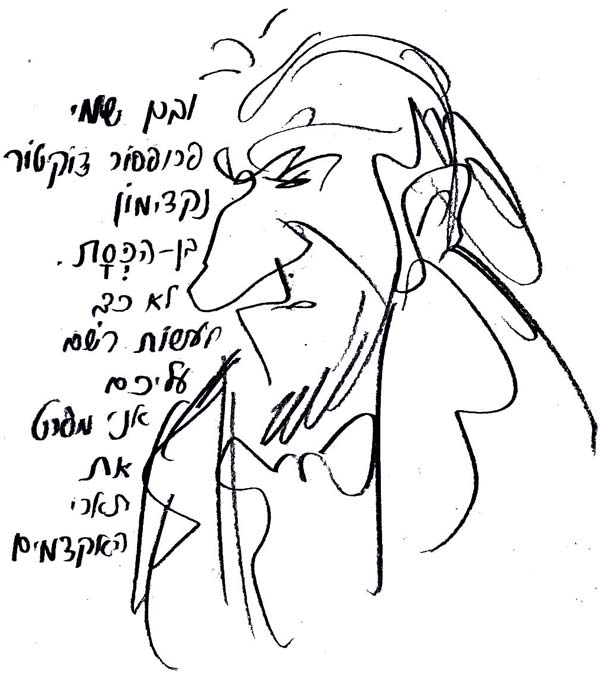 ובכן שמי
פרופסור דוקטור
נקדימון
בן-הכְּסָת.
לא כדי
לעשות רֹשם
עליכם
אני מפרט
את
תארי
האקדמים